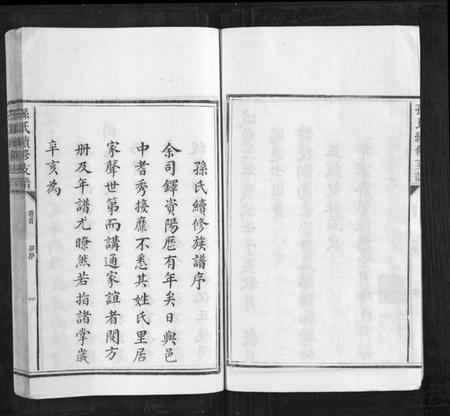 孫氏續修族譜序
余司鐸資陽歷有年矣日與邑
中耆秀接靡不悉其姓氏里居
家聲世第而講通家誼者閱方
冊及年譜尤瞭然若指諸掌歲
辛亥為
孫氏續修支譜
卷首